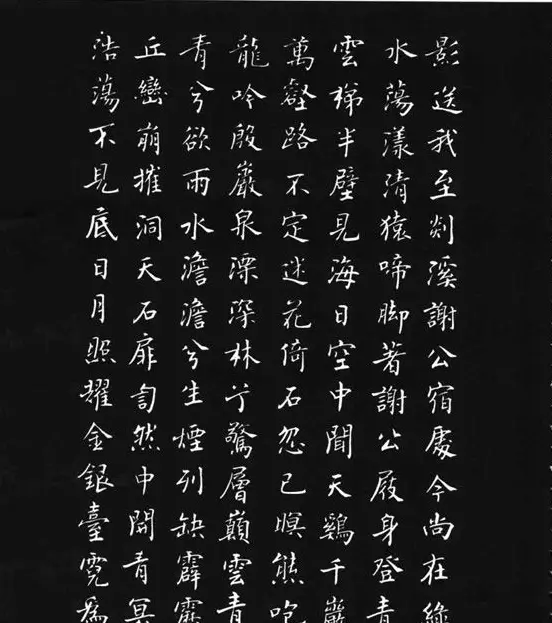 影送我至剡溪謝公宿處今尚在綠
水蕩漾清猿啼脚著謝公屐身登青
雲梯半壁見海日空中聞天鷄千巖
萬壑路不定迷花倚石忽已暝熊咆
龍吟殷巖泉溧深林兮驚層巔雲青
青兮欲雨水澹澹兮生煙列缺霹靂
丘巒崩摧洞天石扉訇然中開青冥
浩蕩不見底日月照耀金銀臺霓爲